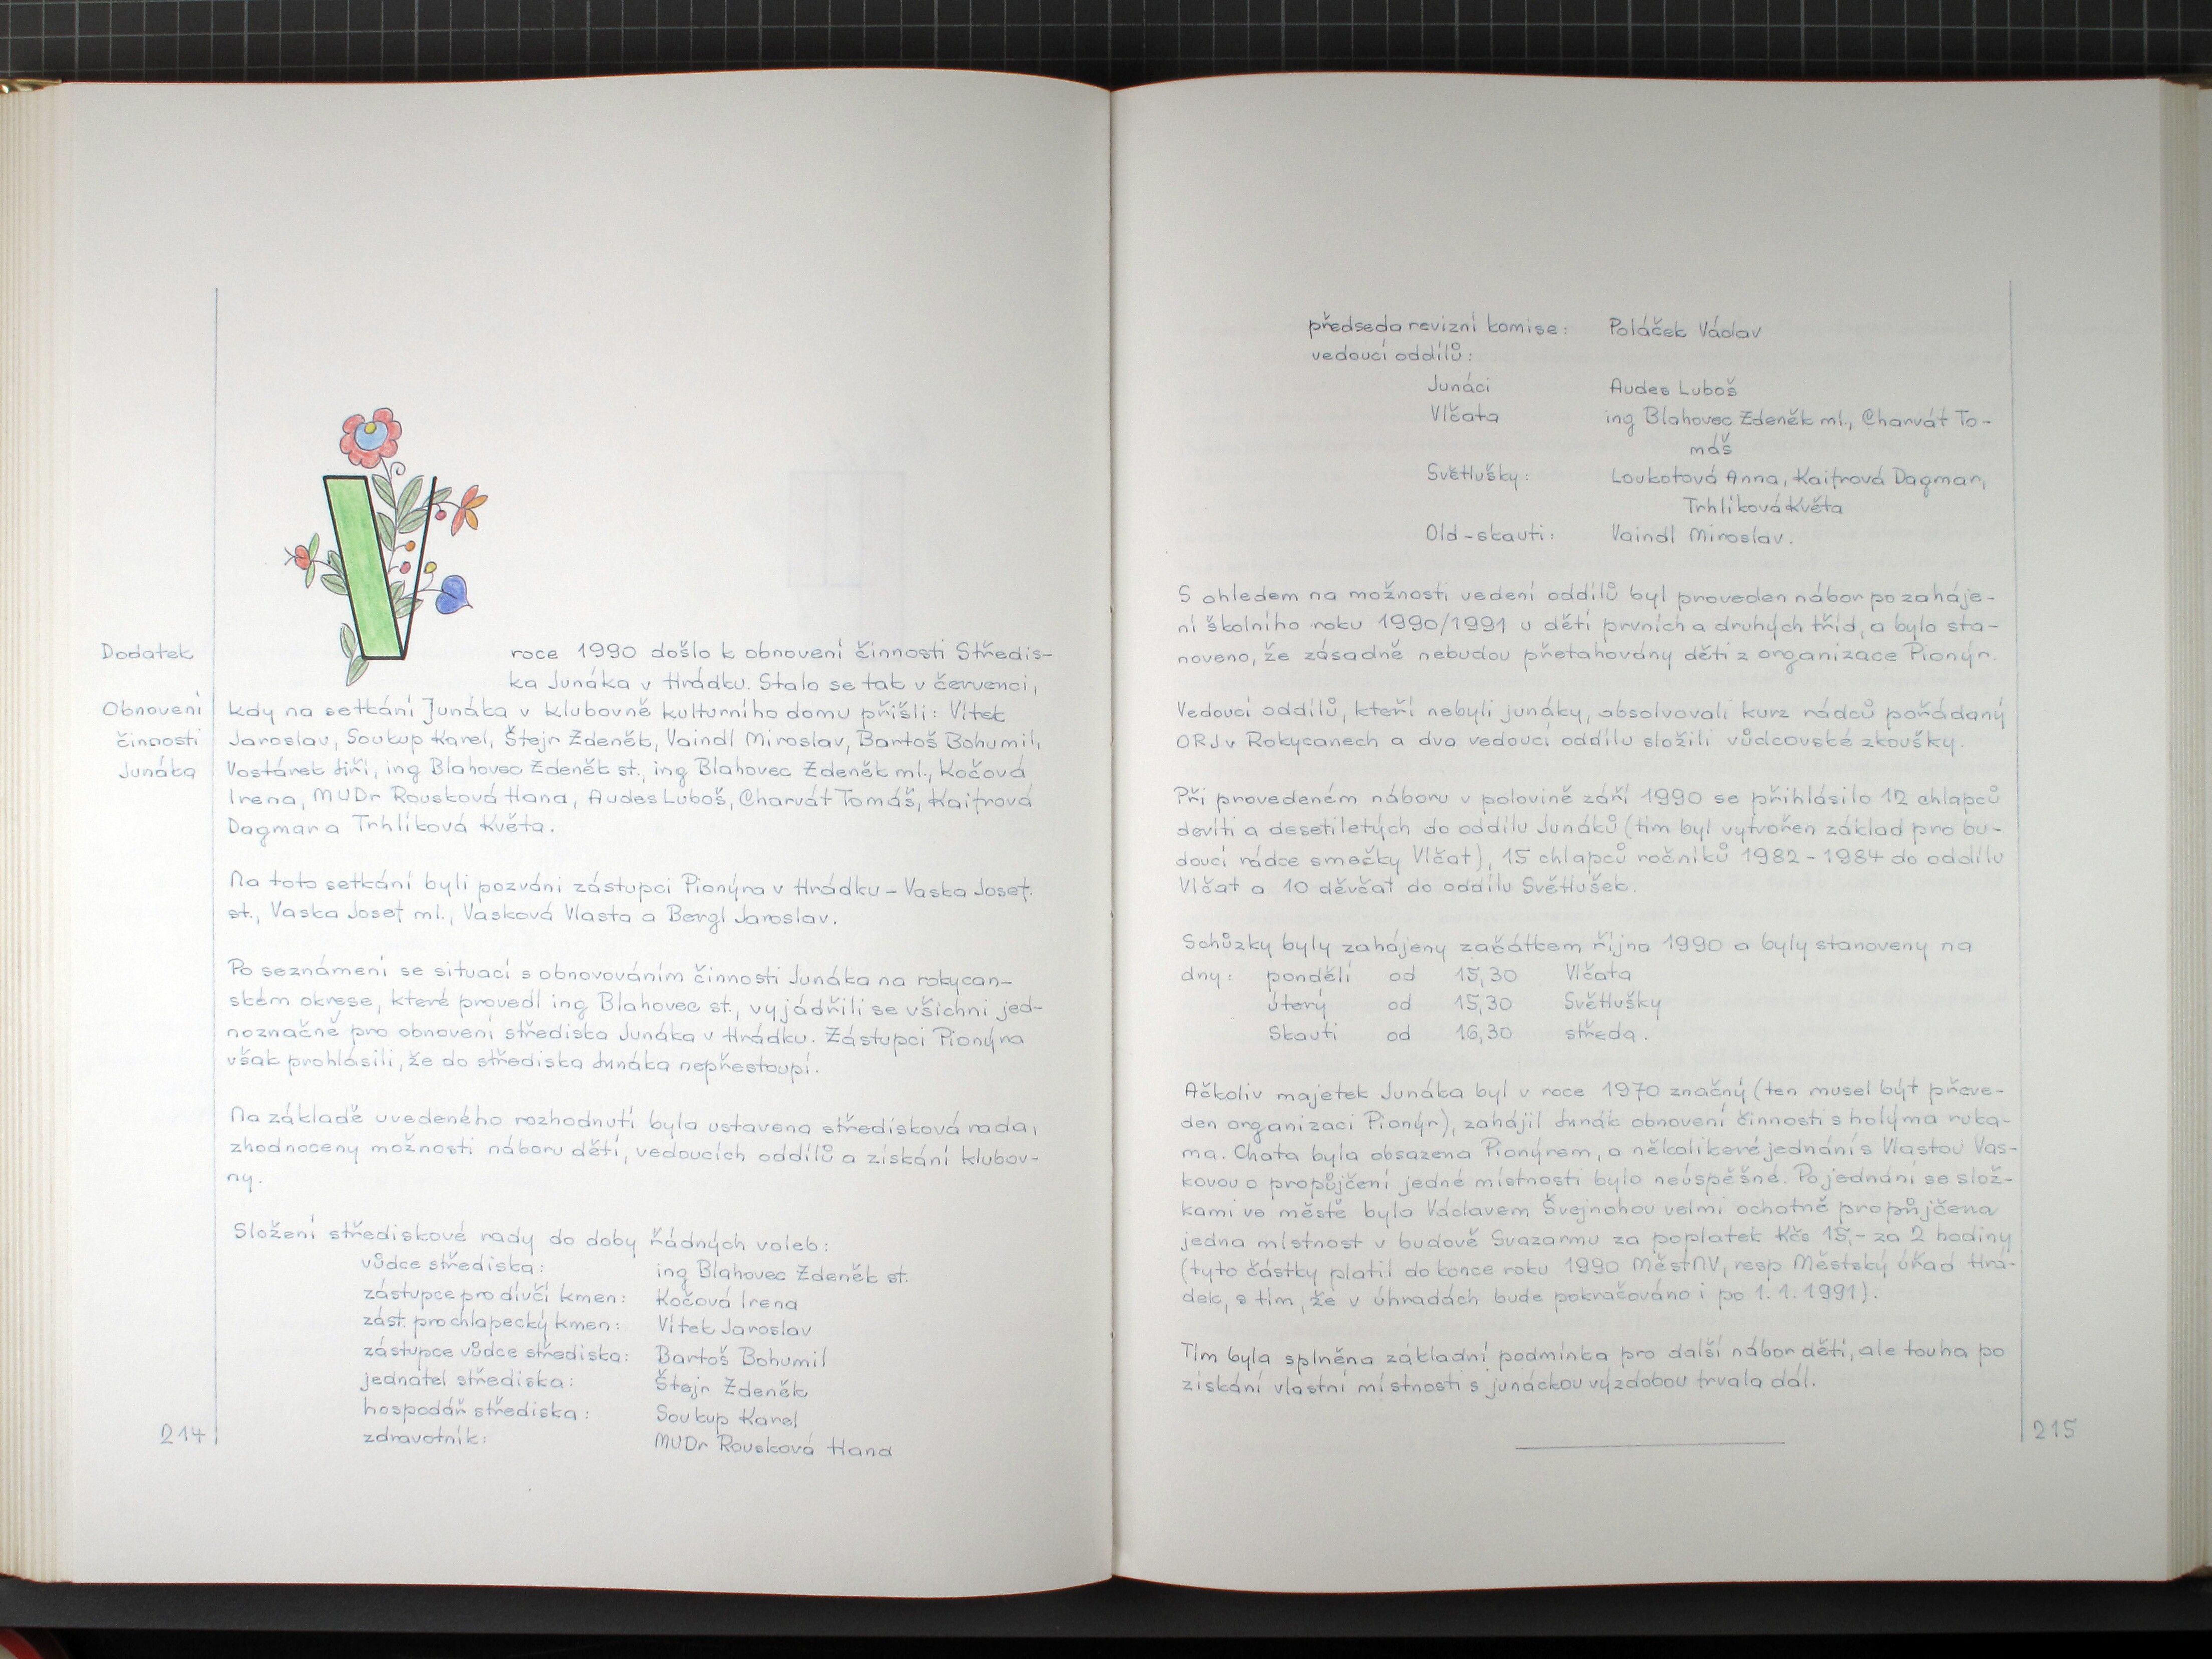 Dodatek
Obnovení
činnosti
Junáka
V roce 1990 došlo k obnovení činnosti Středis-
ka Junáka v Hrádku. Stalo se tak v červenci,
kdy na setkání Junáka v klubovně kulturního domu přišli: Vítek
Jaroslav, Soukup Karel, Štejr Zdeněk, Vaindl Miroslav, Bartoš Bohumil,
Vostárek Jiří, ing Blahovec Zdeněk st., ing Blahovec Zdeněk ml., Kočová
Irena, MUDr Rousková Hana, Audes Luboš, Charvát Tomáš, Kaifrová
Dagmar a Trhlíková Květa.
Na toto setkání byli pozváni zástupci Pionýra v Hrádku - Vaska Josef.
st., Vaska Josef ml., Vasková Vlasta a Bergl Jaroslav.
Po seznámení se situací s obnovováním činnosti Junáka na rokycan-
ském okrese, které provedl ing Blahovec st., vyjádřili se všichni jed-
noznačně pro obnovení střediska Junáka v Hrádku. Zástupci Pionýra
však prohlásili, že do střediska Junáka nepřestoupí.
Na základě uvedeného rozhodnutí byla ustavena středisková rada,
zhodnoceny možnosti náboru dětí, vedoucích oddílů a získání klubov-
ny.
Složení střediskové rady do doby řádných voleb:
vůdce střediska: ing Blahovec Zdeněk st.
zástupce pro dívčí kmen: Kočová Irena
zást. pro chlapecký kmen: Vítek Jaroslav
zástupce vůdce střediska: Bartoš Bohumil
jednatel střediska: Štejr Zdeněk
hospodář střediska: Soukup Karel
zdravotník: MUDr Rousková Hana
214
předseda revizní komise: Poláček Václav
vedoucí oddílů:
Junáci Audes Luboš
Vlčata ing Blahovec Zdeněk ml., Charvát To-
máš
Světlušky: Loukotová Anna, Kaifrová Dagmar,
Trhlíková Květa
Old-skauti: Vaindl Miroslav.
S ohledem na možnosti vedení oddílů byl proveden nábor po zaháje-
ní školního roku 1990/1991 u dětí prvních a druhých tříd, a bylo sta-
noveno, že zásadně nebudou přetahovány děti z organizace Pionýr.
Vedoucí oddílů, kteří nebyli junáky, absolvovali kurz rádců pořádaný
ORJ v Rokycanech a dva vedoucí oddílu složili vůdcovské zkoušky.
Při provedeném náboru v polovině září 1990 se přihlásilo 12 chlapců
devíti a desetiletých do oddílu Junáků (tím byl vytvořen základ pro bu-
doucí rádce smečky Vlčat), 15 chlapců ročníků 1982 - 1984 do oddílu
Vlčat a 10 děvčat do oddílu Světlušek.
Schůzky byly zahájeny začátkem října 1990 a byly stanoveny na
dny: pondělí od 15,30 Vlčata
úterý od 15,30 Světlušky
Skauti od 16,30 středa.
Ačkoliv majetek Junáka byl v roce 1970 značný (ten musel být převe-
den organizaci Pionýr), zahájil Junák obnovení činnosti s holýma ruka-
ma. Chata byla obsazena Pionýrem, a několikeré jednání s Vlastou Vas-
kovou o propůjčení jedné místnosti bylo neúspěšné. Po jednání se slož-
kami ve městě byla Václavem Švejnohou velmi ochotně propůjčena
jedna místnost v budově Svazarmu za poplatek Kčs 15,- za 2 hodiny
(tyto částky platil do konce roku 1990 MěstNV, resp Městský úřad Hrá-
dek, s tím, že v úhradách bude pokračováno i po 1. 1. 1991).
Tím byla splněna základní podmínka pro další nábor dětí, ale touha po
získání vlastní místnosti s junáckou výzdobou trvala dál.
215